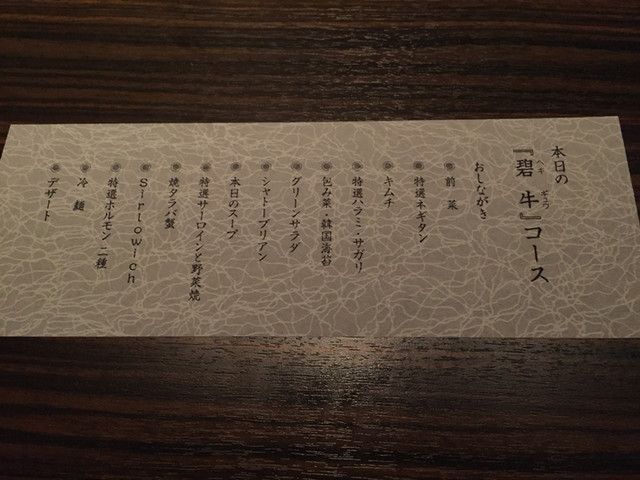 本日の
『碧牛』コース
ヘキ ギュウ
おしながき
前菜
特選ネギタン
キムチ
特選ハラミ・サガリ
包み菜・韓国海苔
グリーンサラダ
シャトーブリアン
本日のスープ
特選サーロインと野菜焼
焼タラバ蟹
Sirlowich
特選ホルモン二種
冷麺
デザート